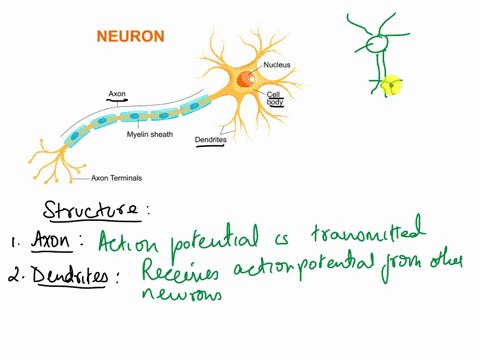 NEURON
Nucleus
Axon
Cell
body
Myelin sheath
Dendrites
Axon Terminals
Structure :
1. Axon : Action potential is transmitted
2. Dendrites : Receives action potential from other
neurons